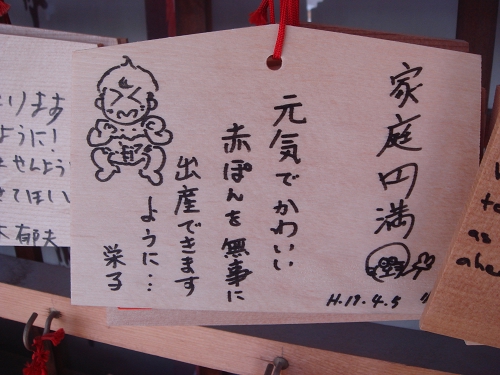 家庭円満
元気でかわいい
赤ぽんを無事に
出産できます
ように…
栄子
H.19.4.5
ります
ように!
ませんよう
せてほしい
郁夫
to
as
ahe